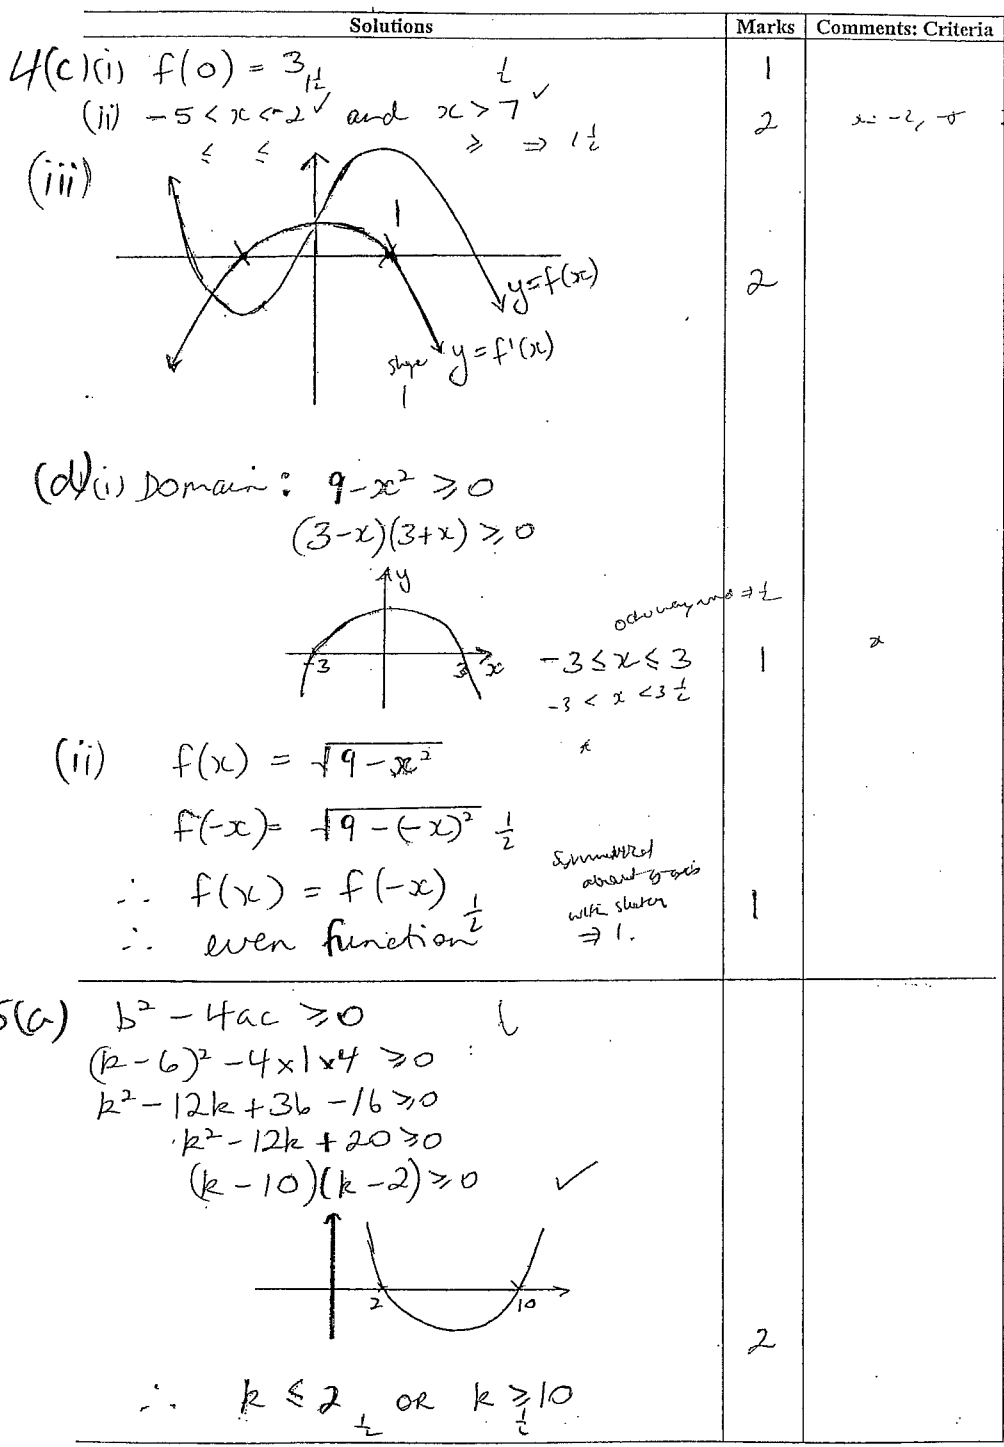 Solutions Marks Comments: Criteria
4(c)(i) f(0) = 3 1
(ii) -5 < x < -2 ✓ and x > 7 ✓ 2
≤ ≤ ≥ ⇒ 1 1/2
(iii)
1
y=f(x) 2
y=f'(x)
1
(d)(i) Domain: 9-x² ≥ 0
(3-x)(3+x) ≥ 0
y
-3 3 x
-3 ≤ x ≤ 3 1
-3 < x < 3 1/2
(ii) f(x) = √9-x²
f(-x) = √9-(-x)² 1/2
∴ f(x) = f(-x)
∴ even function 1/2 1
symmetrical
about y-axis
with sketch
⇒ 1.
5(a) b² - 4ac ≥ 0
(k-6)² - 4×1×4 ≥ 0
k² - 12k + 36 - 16 ≥ 0
k² - 12k + 20 ≥ 0
(k-10)(k-2) ≥ 0 ✓
2 10
2
∴ k ≤ 2 1/2 OR k ≥ 10 1/2